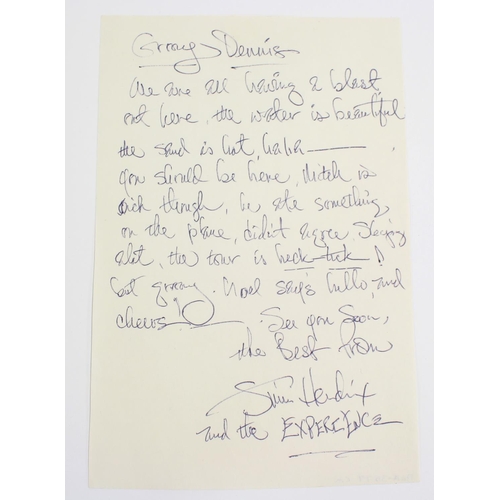 Groovy Dennis
We are all having a blast
out here, the water is beautiful
the sand is hot, haha —
you should be here, Mitch is
sick though, he ate something
on the plane, didn't agree. Sleeping
alot, the tour is heck-tick
but groovy. Noel says hello, and
cheers See you soon,
the Best from
Jimi Hendrix
and the EXPERIENCE